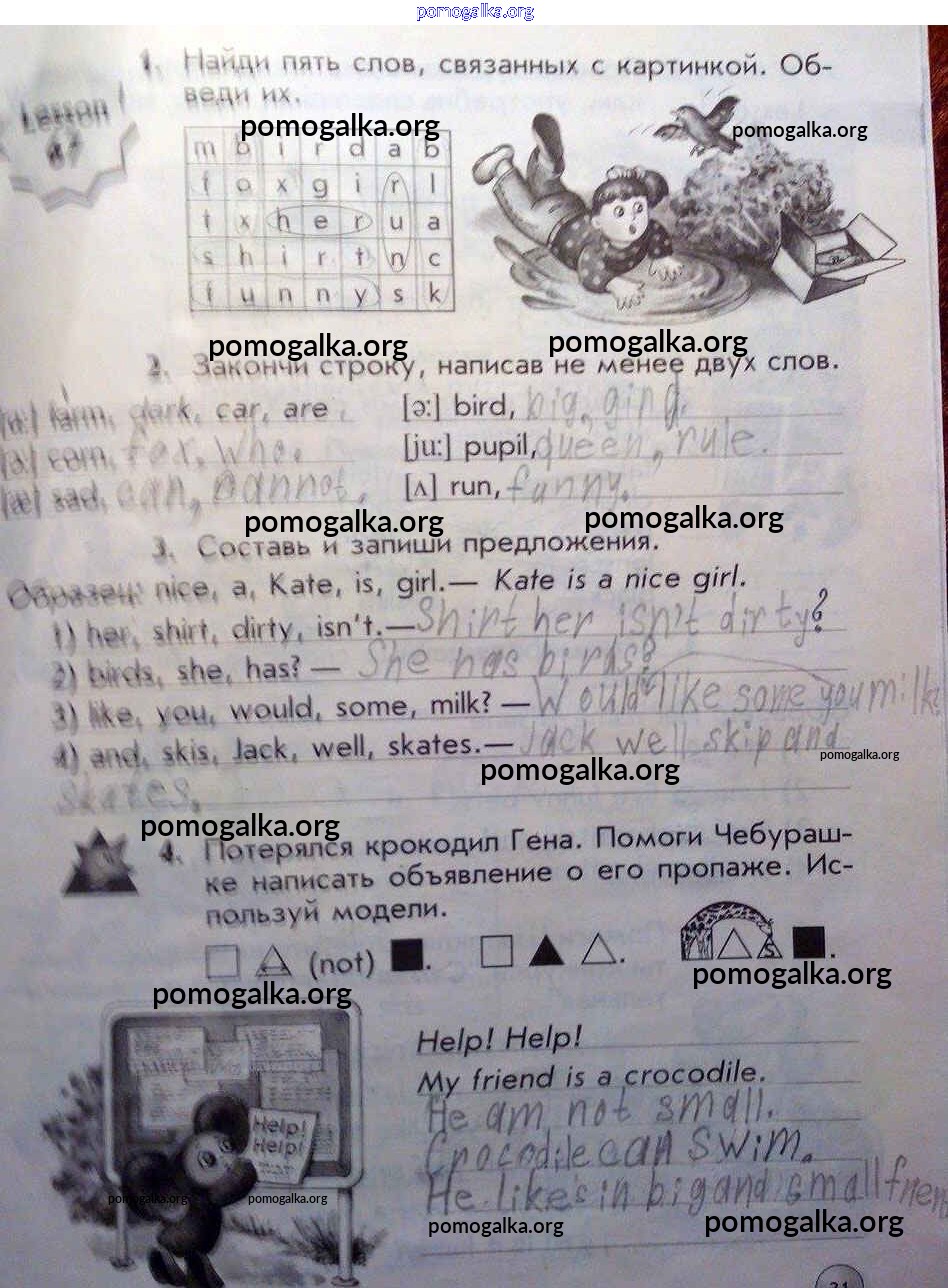 pomogalka.org
1. Найди пять слов, связанных с картинкой. Об-
веди их.
Lesson
pomogalka.org
pomogalka.org
m b i r d a b
f o x g i r l
t x h e r u a
s h i r t n c
f u n n y s k
pomogalka.org
pomogalka.org
2. Закончи строку, написав не менее двух слов.
[ɑ:] farm, dark, car, are.
[ə:] bird, big, ging.
[ɔ:] corn, fox, Who.
[ju:] pupil, queen, rule.
[æ] sad, can, cannot.
[ʌ] run, funny.
pomogalka.org
pomogalka.org
3. Составь и запиши предложения.
Образец: nice, a, Kate, is, girl.— Kate is a nice girl.
1) her, shirt, dirty, isn't.—Shirt her isn't dirty?
2) birds, she, has? — She has birds?
3) like, you, would, some, milk? — Would like some you milk?
4) and, skis, Jack, well, skates.— Jack well skip and
pomogalka.org
pomogalka.org
skates.
pomogalka.org
4. Потерялся крокодил Гена. Помоги Чебураш-
ке написать объявление о его пропаже. Ис-
пользуй модели.
(not) . . s .
pomogalka.org
pomogalka.org
Help! Help!
My friend is a crocodile.
He am not small.
Help!
Help!
Crocodile can swim.
He likes in big and small friend
pomogalka.org
pomogalka.org
pomogalka.org
pomogalka.org
31